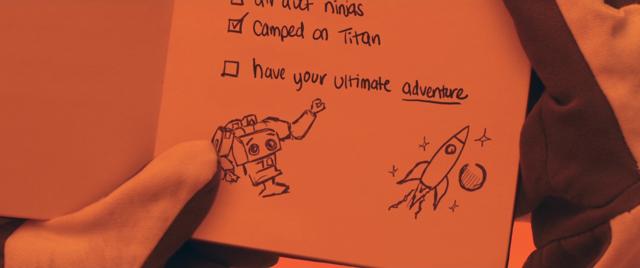 ninjas
Camped on Titan
have your ultimate adventure